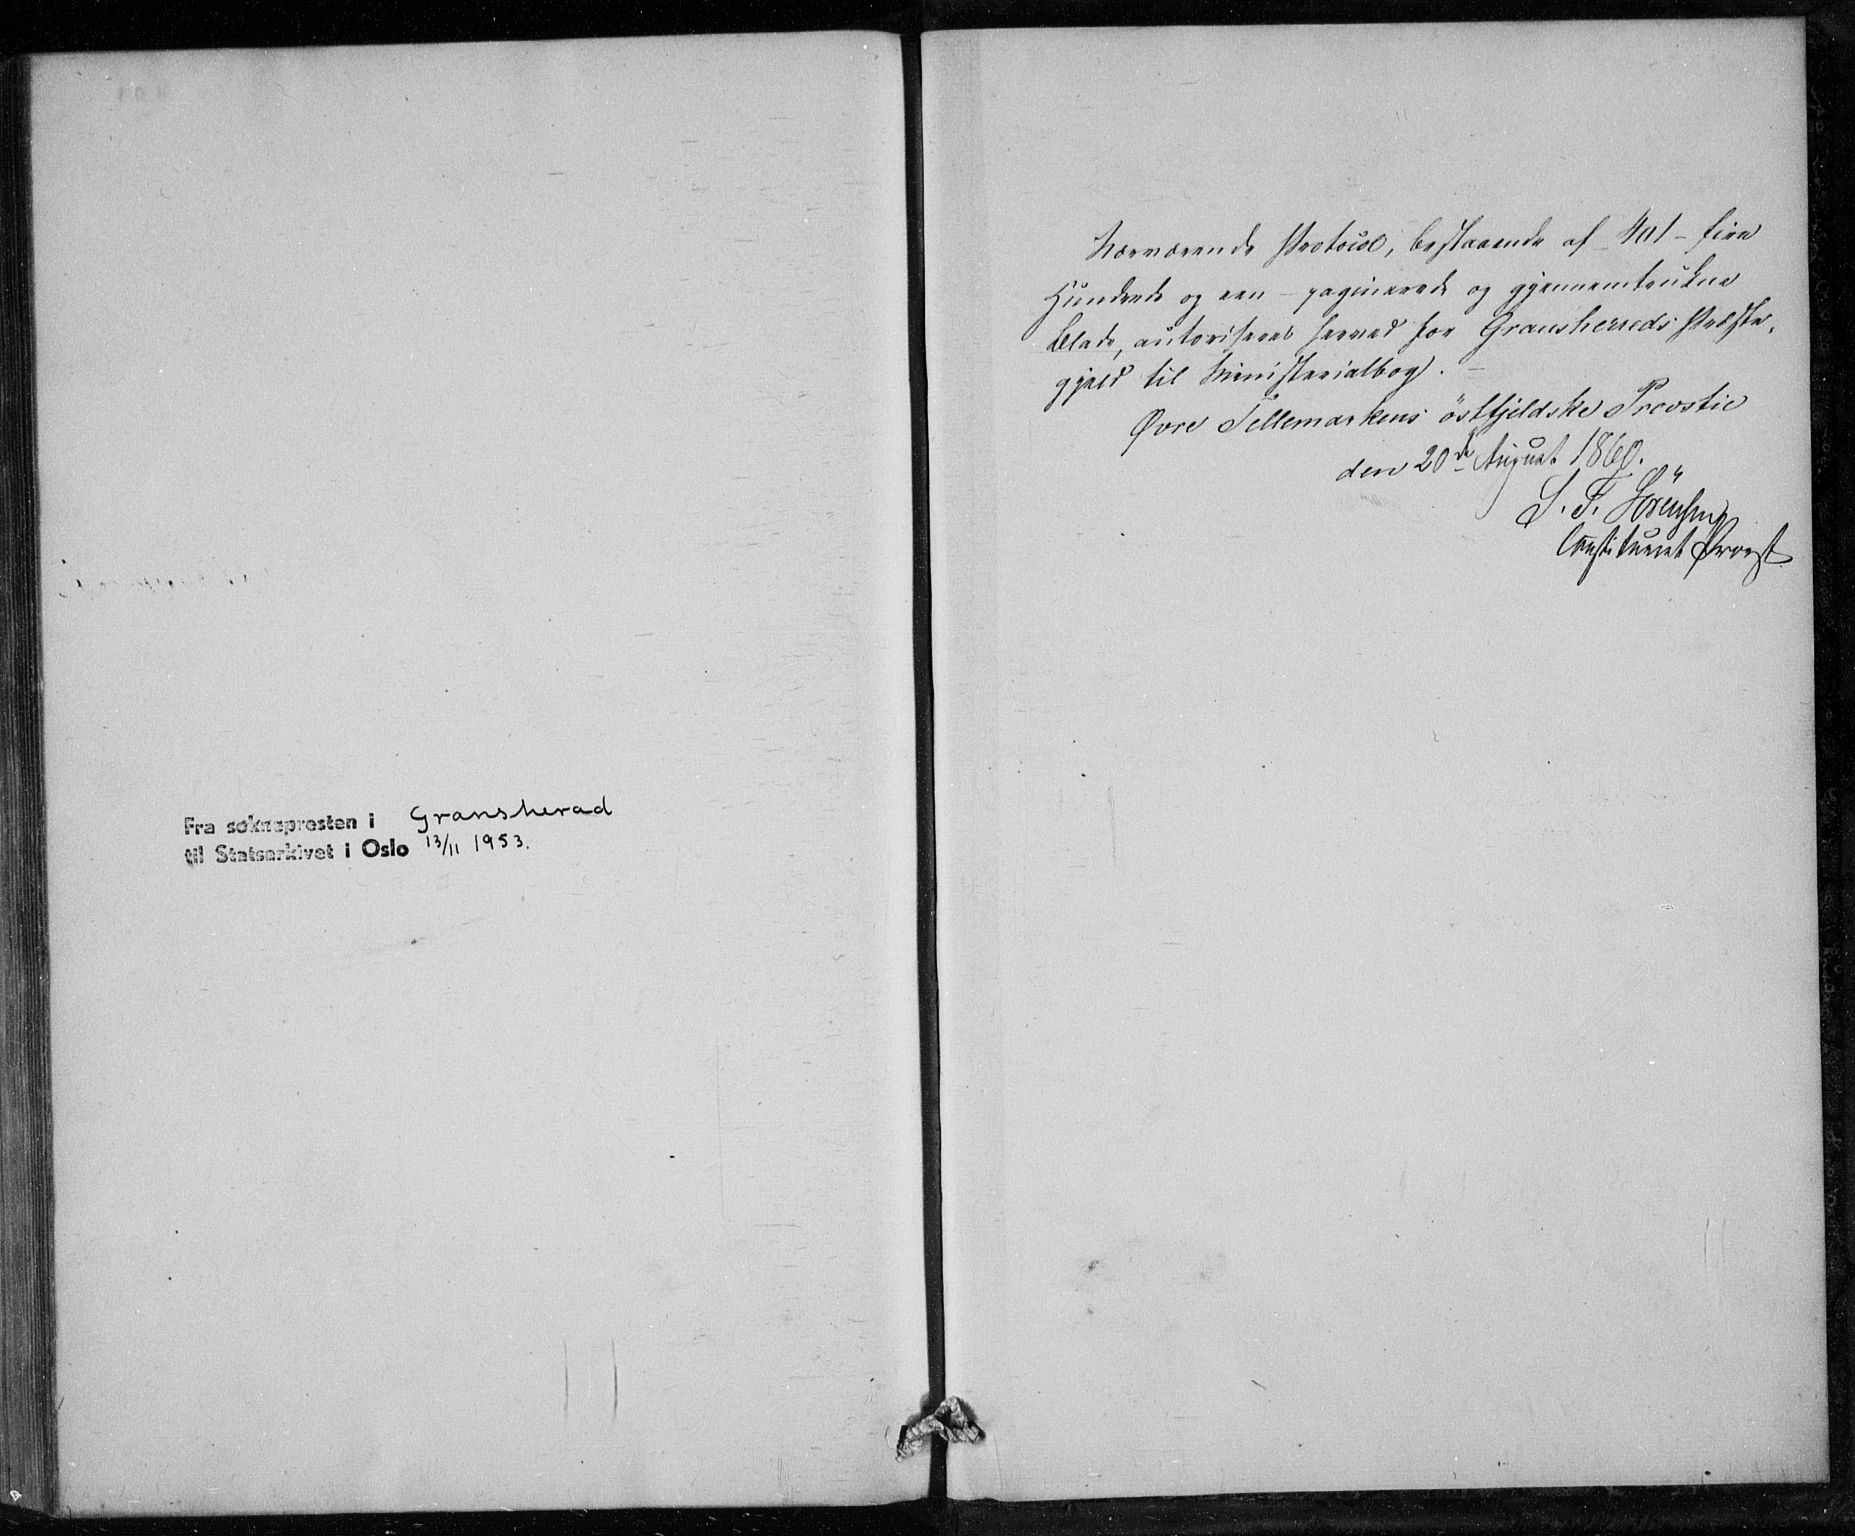 Fra soknepresten i Gransherad
til Statsarkivet i Oslo 13/11 1953.
Nærværende Protocol, bestaaende af 401 – fire
Hundrede og een – paginerede og gjennemtrukne
Blade, autoriseres herved for Gransherreds Præste-
gjæld til Ministerialbog. –
Øvre Tellemarkens östfjeldske Provstie
den 20de August 1860.
S. F.
Constitueret Provst